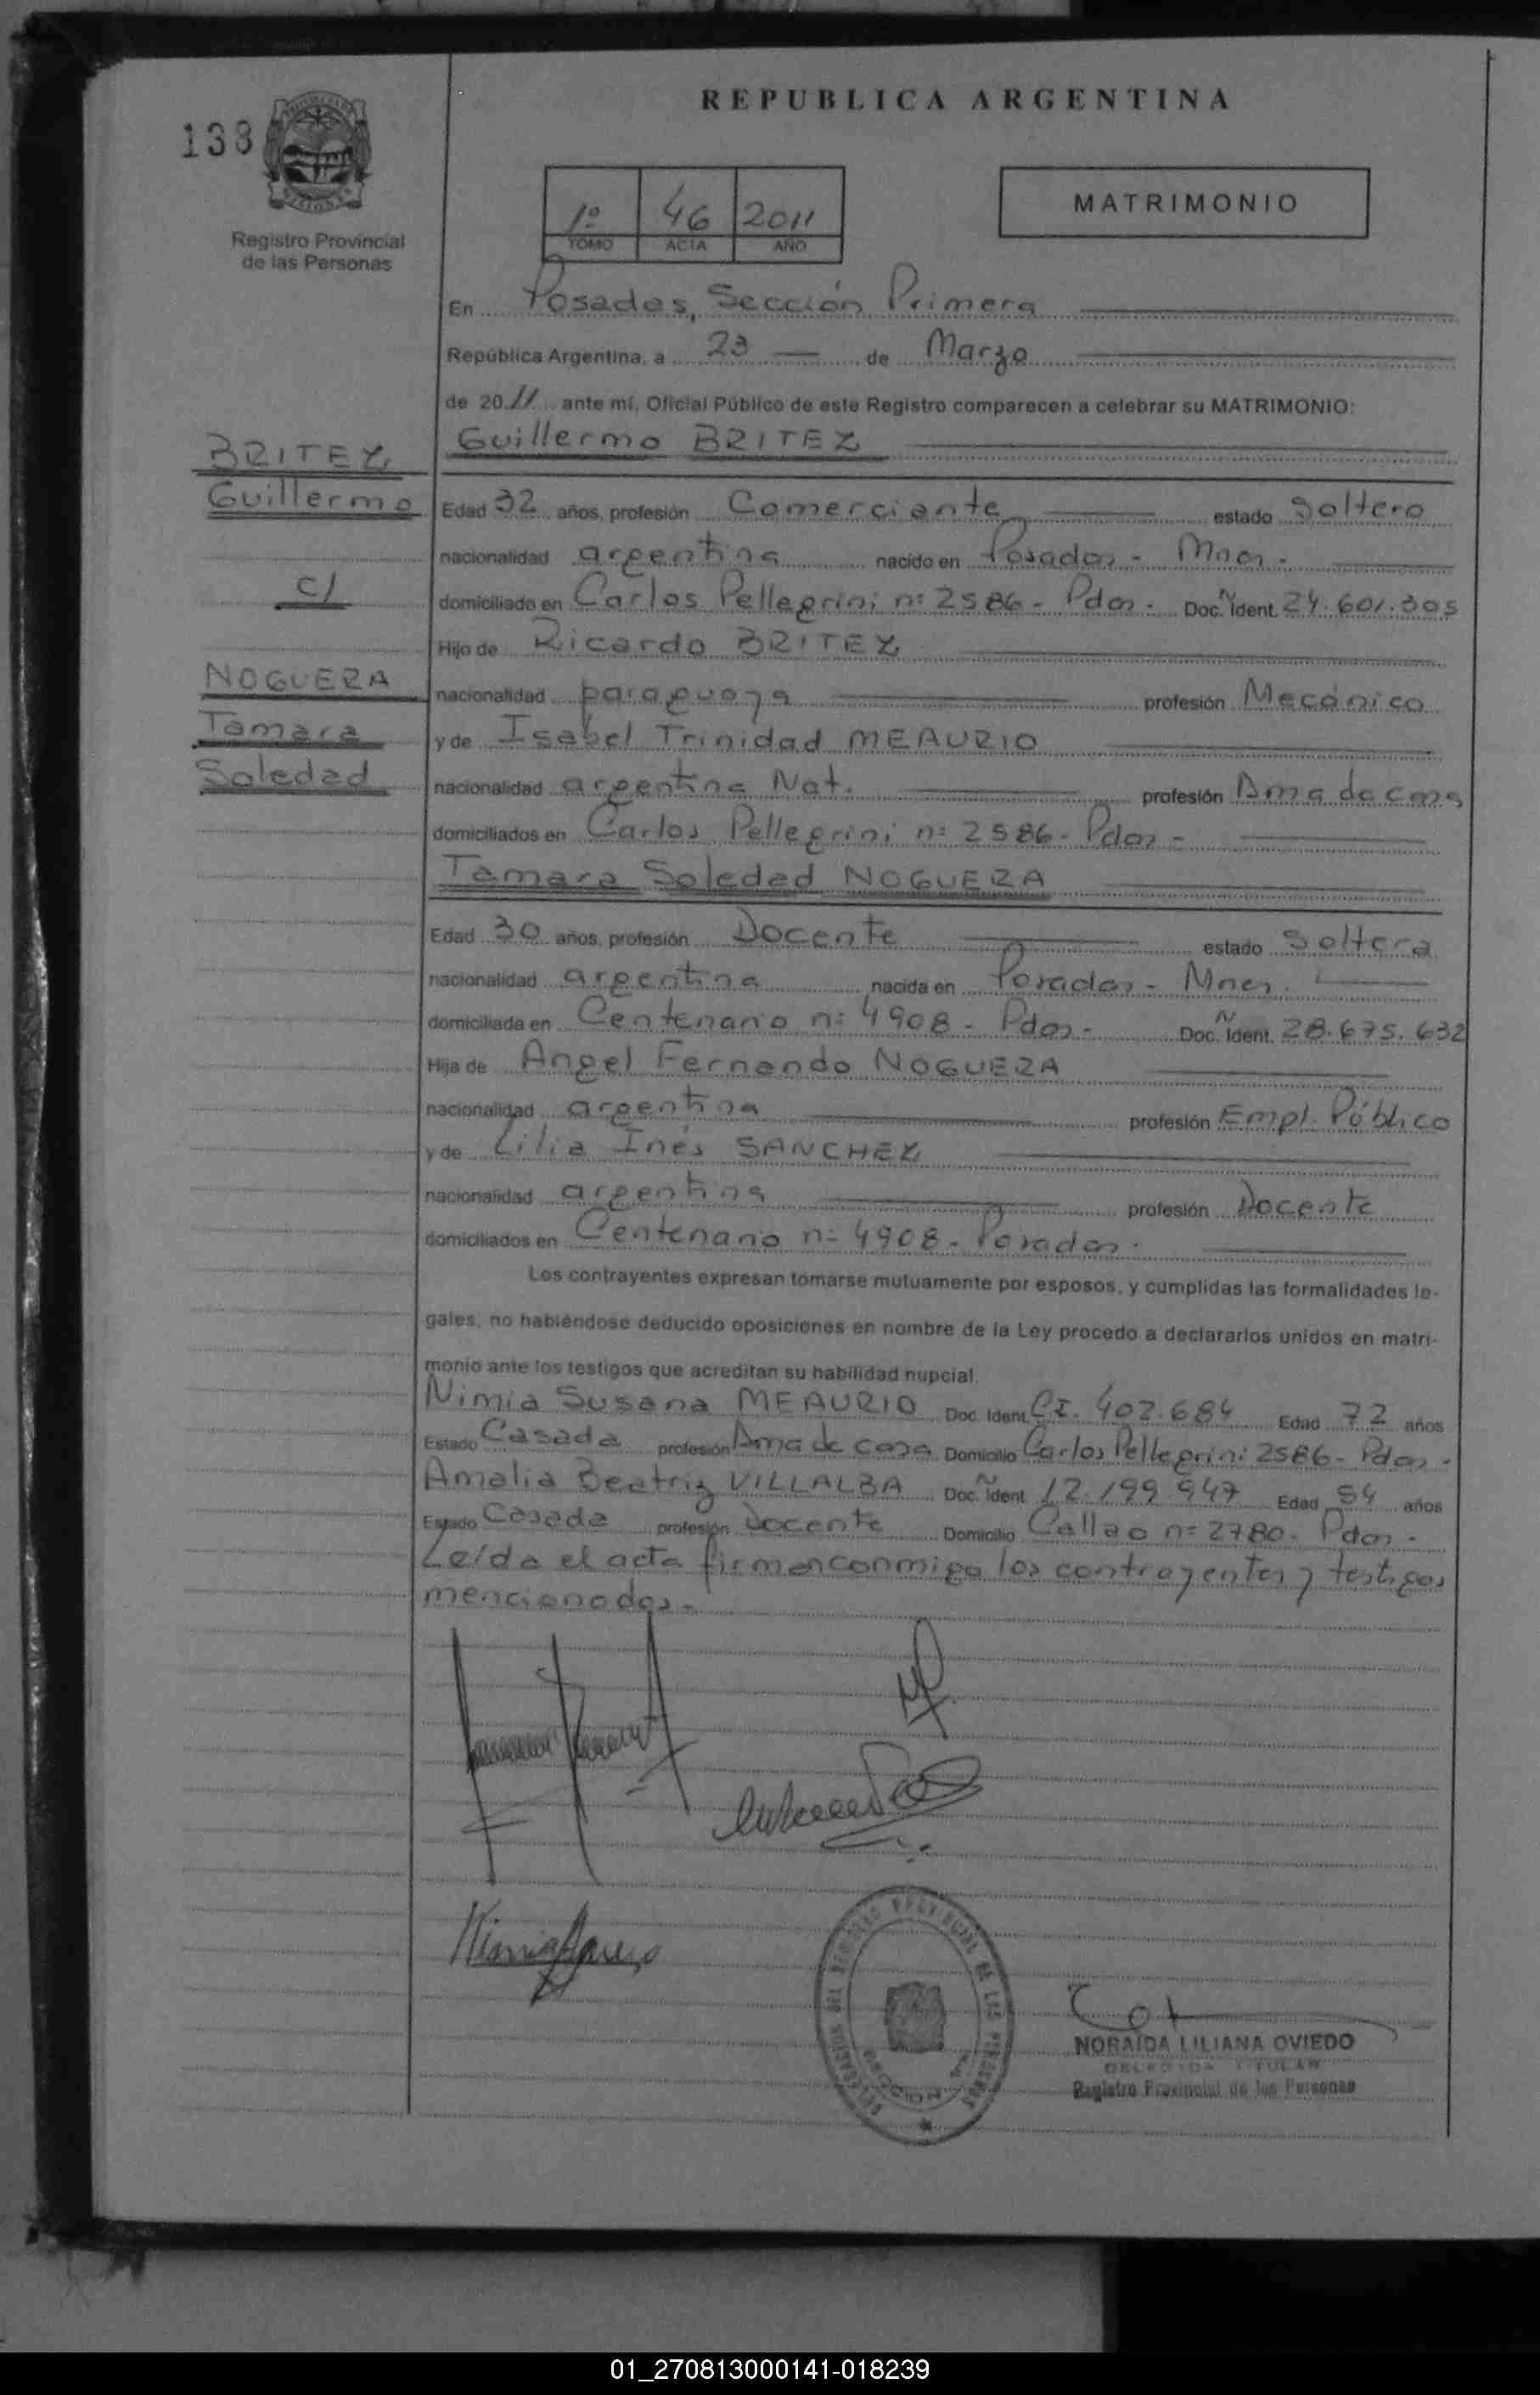 REPUBLICA ARGENTINA
138
Registro Provincial
de las Personas
1º 46 2011
TOMO ACTA AÑO
MATRIMONIO
En Posadas, Sección Primera
República Argentina, a 23 de Marzo
de 2011 ante mí, Oficial Público de este Registro comparecen a celebrar su MATRIMONIO:
BRITEZ
Guillermo
c/
NOGUERA
Tamara
Soledad
Guillermo BRITEZ
Edad 32 años, profesión Comerciante estado Soltero
nacionalidad argentina nacido en Posadas - Mnes.
domiciliado en Carlos Pellegrini nº 2586 - Pdas. Doc. Ñ Ident. 24.601.305
Hijo de Ricardo BRITEZ
nacionalidad paraguaya profesión Mecánico
y de Isabel Trinidad MEAURIO
nacionalidad argentina Nat. profesión Ama de casa
domiciliados en Carlos Pellegrini nº 2586 - Pdas -
Tamara Soledad NOGUERA
Edad 30 años, profesión Docente estado Soltera
nacionalidad argentina nacida en Posadas - Mnes.
domiciliada en Centenario nº 4908 - Pdas - Doc. Ñ Ident. 28.675.632
Hija de Angel Fernando NOGUERA
nacionalidad argentina profesión Empl. Público
y de Lilia Inés SANCHEZ
nacionalidad argentina profesión Docente
domiciliados en Centenario nº 4908 - Posadas.
Los contrayentes expresan tomarse mutuamente por esposos, y cumplidas las formalidades le-
gales, no habiéndose deducido oposiciones en nombre de la Ley procedo a declararlos unidos en matri-
monio ante los testigos que acreditan su habilidad nupcial.
Nimia Susana MEAURIO Doc. Ident. CI. 402.684 Edad 72 años
Estado Casada profesión Ama de casa Domicilio Carlos Pellegrini 2586 - Pdas -
Amalia Beatriz VILLALBA Doc. Ñ Ident. 12.199.947 Edad 54 años
Estado Casada profesión Docente Domicilio Callao nº 2780 - Pdas -
Leída el acta firman conmigo los contrayentes y testigos
mencionados -
NORAIDA LILIANA OVIEDO
DELEGADA TITULAR
Registro Provincial de las Personas
01_270813000141-018239